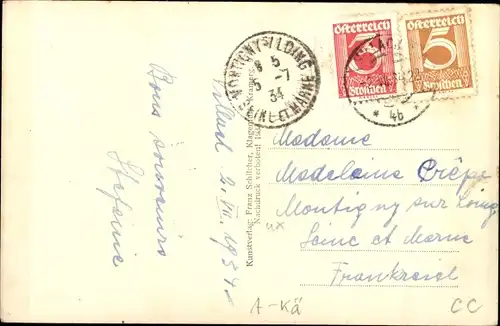 Österreich
Österreich
5
5
Groschen
Groschen
MONTIGNY S/ LOING
SEINE ET MARNE
5
5 -7
34
* 4b
Madame
Madeleine Crêpe
Montigny sur Loing
Seine et Marne
Frankreich
Bons souvenirs
Stefanie
2. VII. 1934
Kunstverlag: Franz Schilcher, Klagenfurt
Nachdruck verboten!
A-Kä
CC